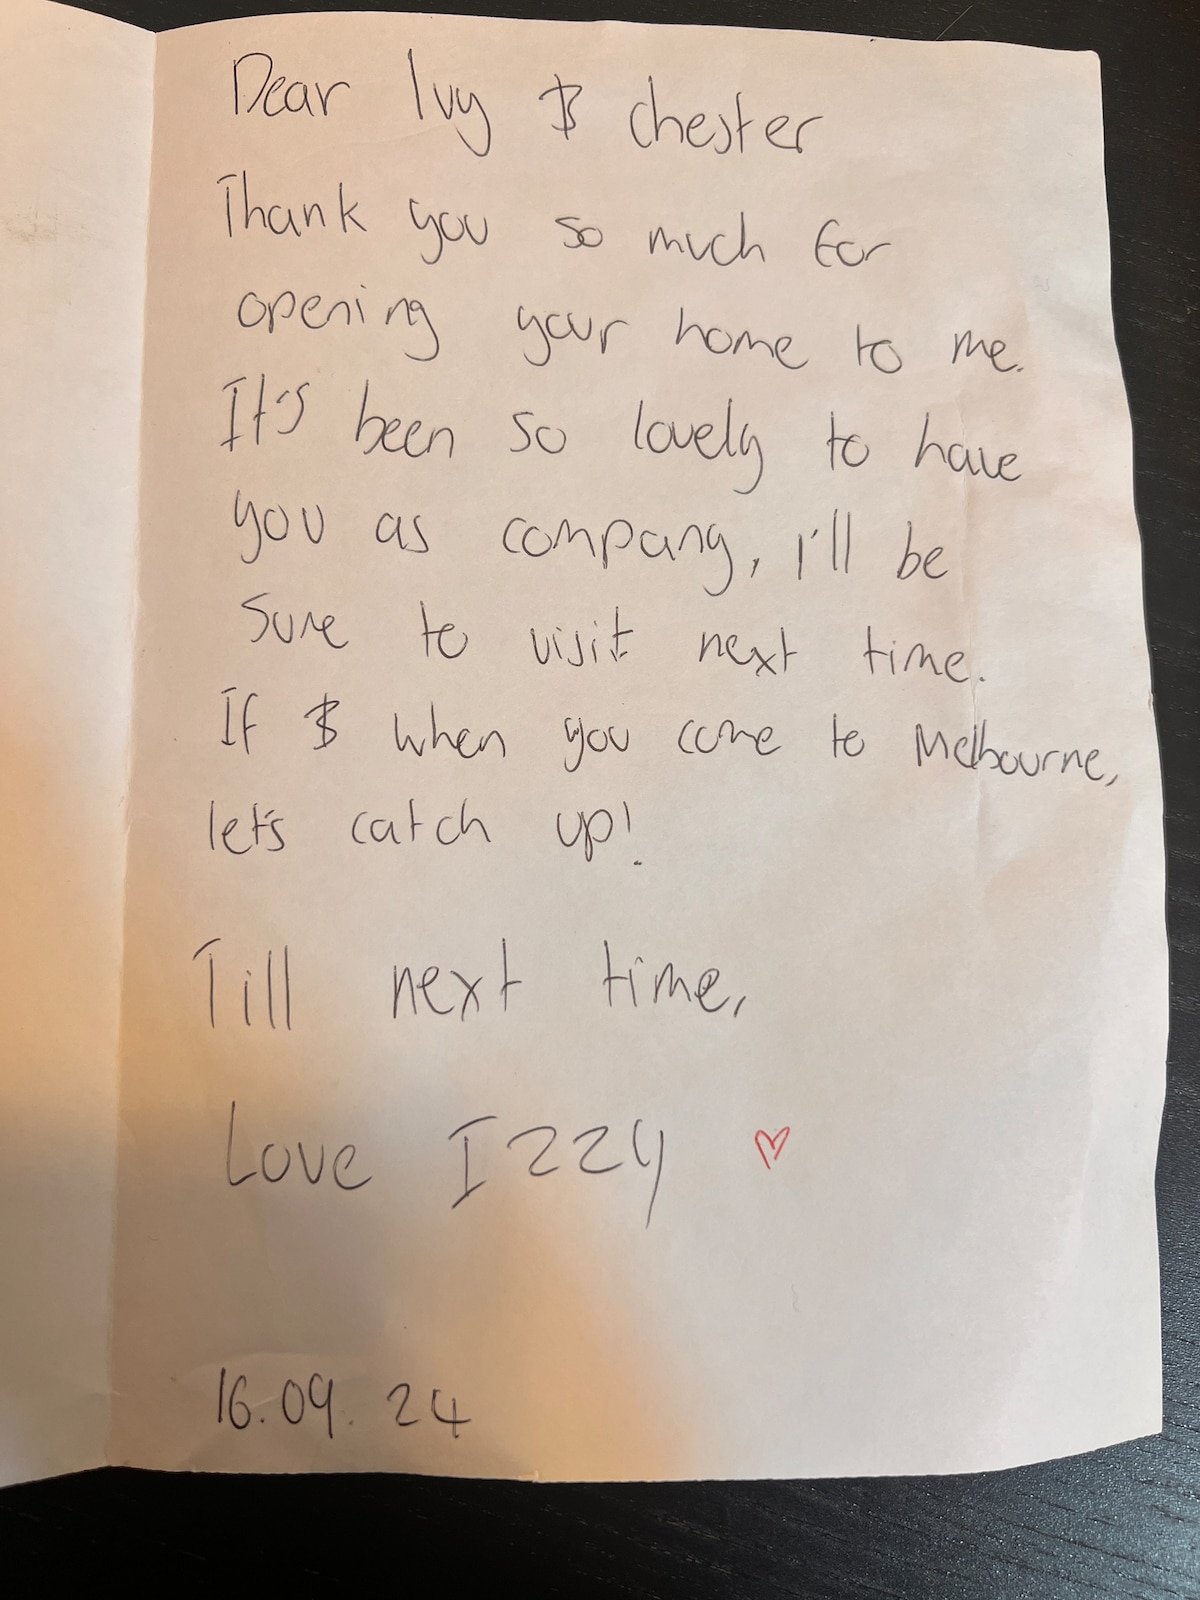 Dear Ivy & Chester
Thank you so much for
opening your home to me.
It's been so lovely to have
you as company, I'll be
sure to visit next time.
If & when you come to Melbourne,
let's catch up!
Till next time,
Love Izzy ♡
16.09.24